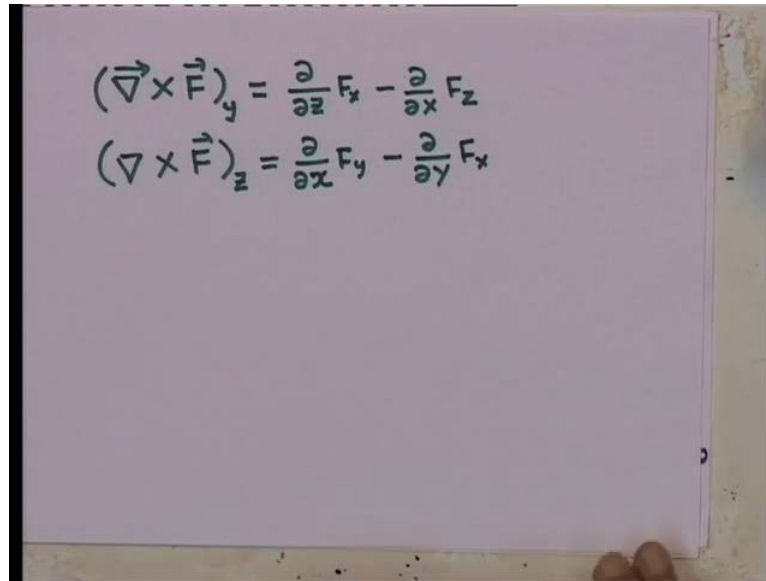 (∇⃗ × F⃗)_y = ∂/∂z F_x − ∂/∂x F_z
(∇ × F⃗)_z = ∂/∂x F_y − ∂/∂y F_x